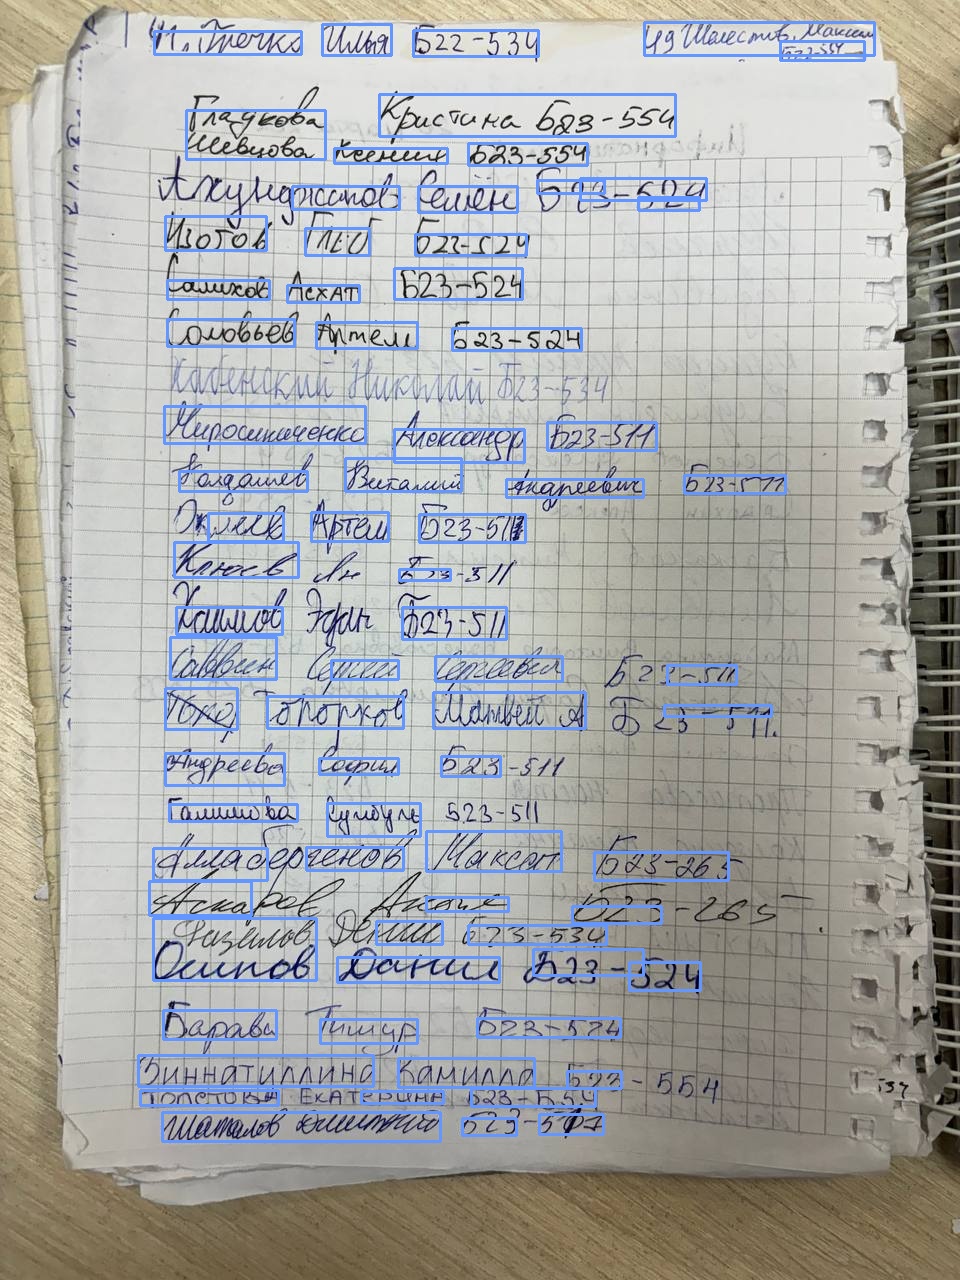 41. Гречко Илья Б22-534
49 Шелестов Максим
Б22-534
Глаукова Кристина Б23-554
Шевцова Ксения Б23-554
Ахунджанов Семён Б23-524
Изотов Глеб Б23-524
Салихов Асхат Б23-524
Соловьев Артём Б23-524
Хабенский Николай Б23-534
Мирошниченко Александр Б23-511
Колдашев Виталий Андреевич Б23-511
Артём Б23-511
Клюев Ян Б23-511
Хаимов Эфан Б23-511
Саввин Сергей Сергеевич Б23-511
Топорков Матвей А Б23-511.
Андреева София Б23-511
Галимова Сумбуль Б23-511
Аллабергенов Максат Б23-265
Аскаров Б23-265
Фазылов Денис Б23-534
Осипов Данил Б23-524
Барава Тимур Б23-524
Зиннатуллина Камилла Б23-554
Толстова Екатерина Б23-554
Шаталов Дмитрий Б23-507
534